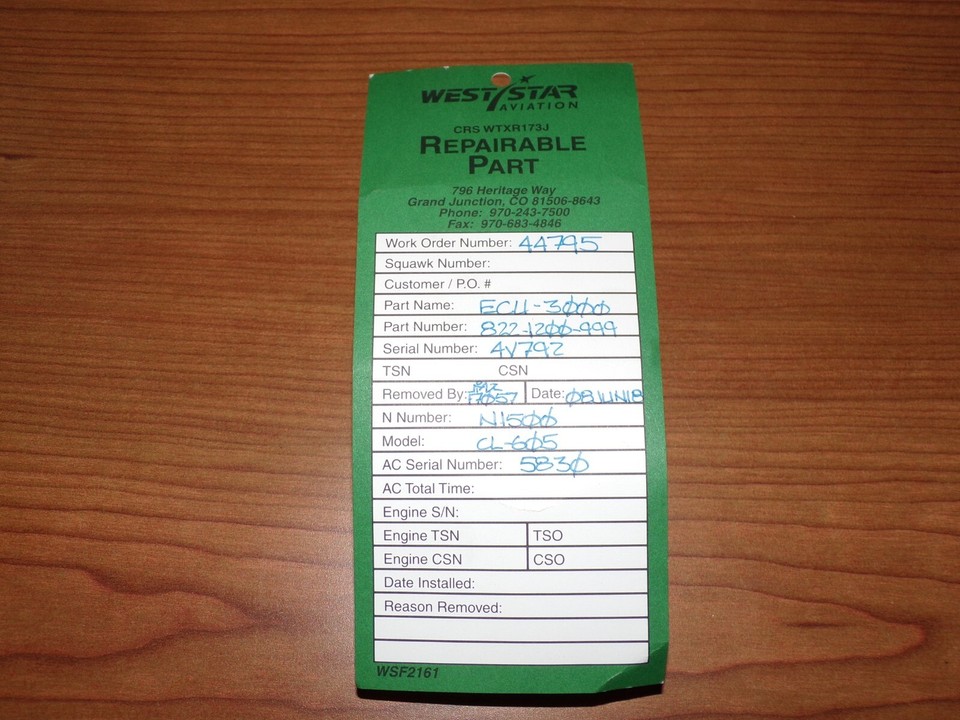 WEST STAR
AVIATION
CRS WTXR173J
REPAIRABLE
PART
796 Heritage Way
Grand Junction, CO 81506-8643
Phone: 970-243-7500
Fax: 970-683-4846
Work Order Number: 44795
Squawk Number:
Customer / P.O. #
Part Name: ECU-3000
Part Number: 822-1200-999
Serial Number: 4V792
TSN CSN
Removed By: 17057 Date: 08JUN18
N Number: N1500
Model: CL-605
AC Serial Number: 5830
AC Total Time:
Engine S/N:
Engine TSN TSO
Engine CSN CSO
Date Installed:
Reason Removed:
WSF2161